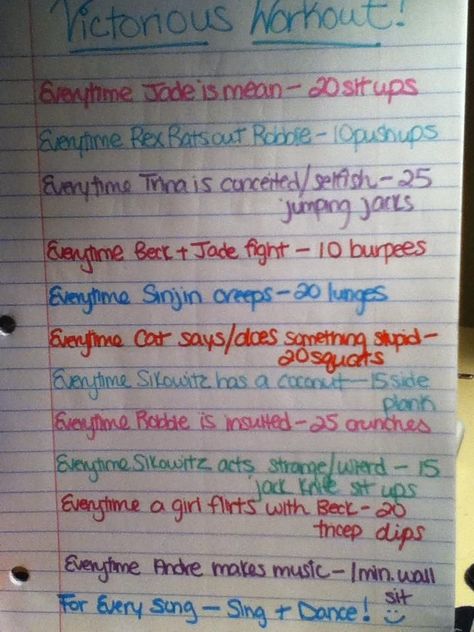 Victorious Workout!
Everytime Jade is mean - 20 sit ups
Everytime Rex Rats out Robbie - 10 pushups
Everytime Trina is conceited/selfish - 25
jumping jacks
Everytime Beck + Jade fight - 10 burpees
Everytime Sinjin creeps - 20 lunges
Everytime Cat says/does something stupid -
20 squats
Everytime Sikowitz has a coconut - 15 side
plank
Everytime Robbie is insulted - 25 crunches
Everytime Sikowitz acts strange/wierd - 15
jack knife sit ups
Everytime a girl flirts with Beck - 20
tricep dips
Everytime Andre makes music - 1 min. wall
sit
For Every Song - Sing + Dance! :)